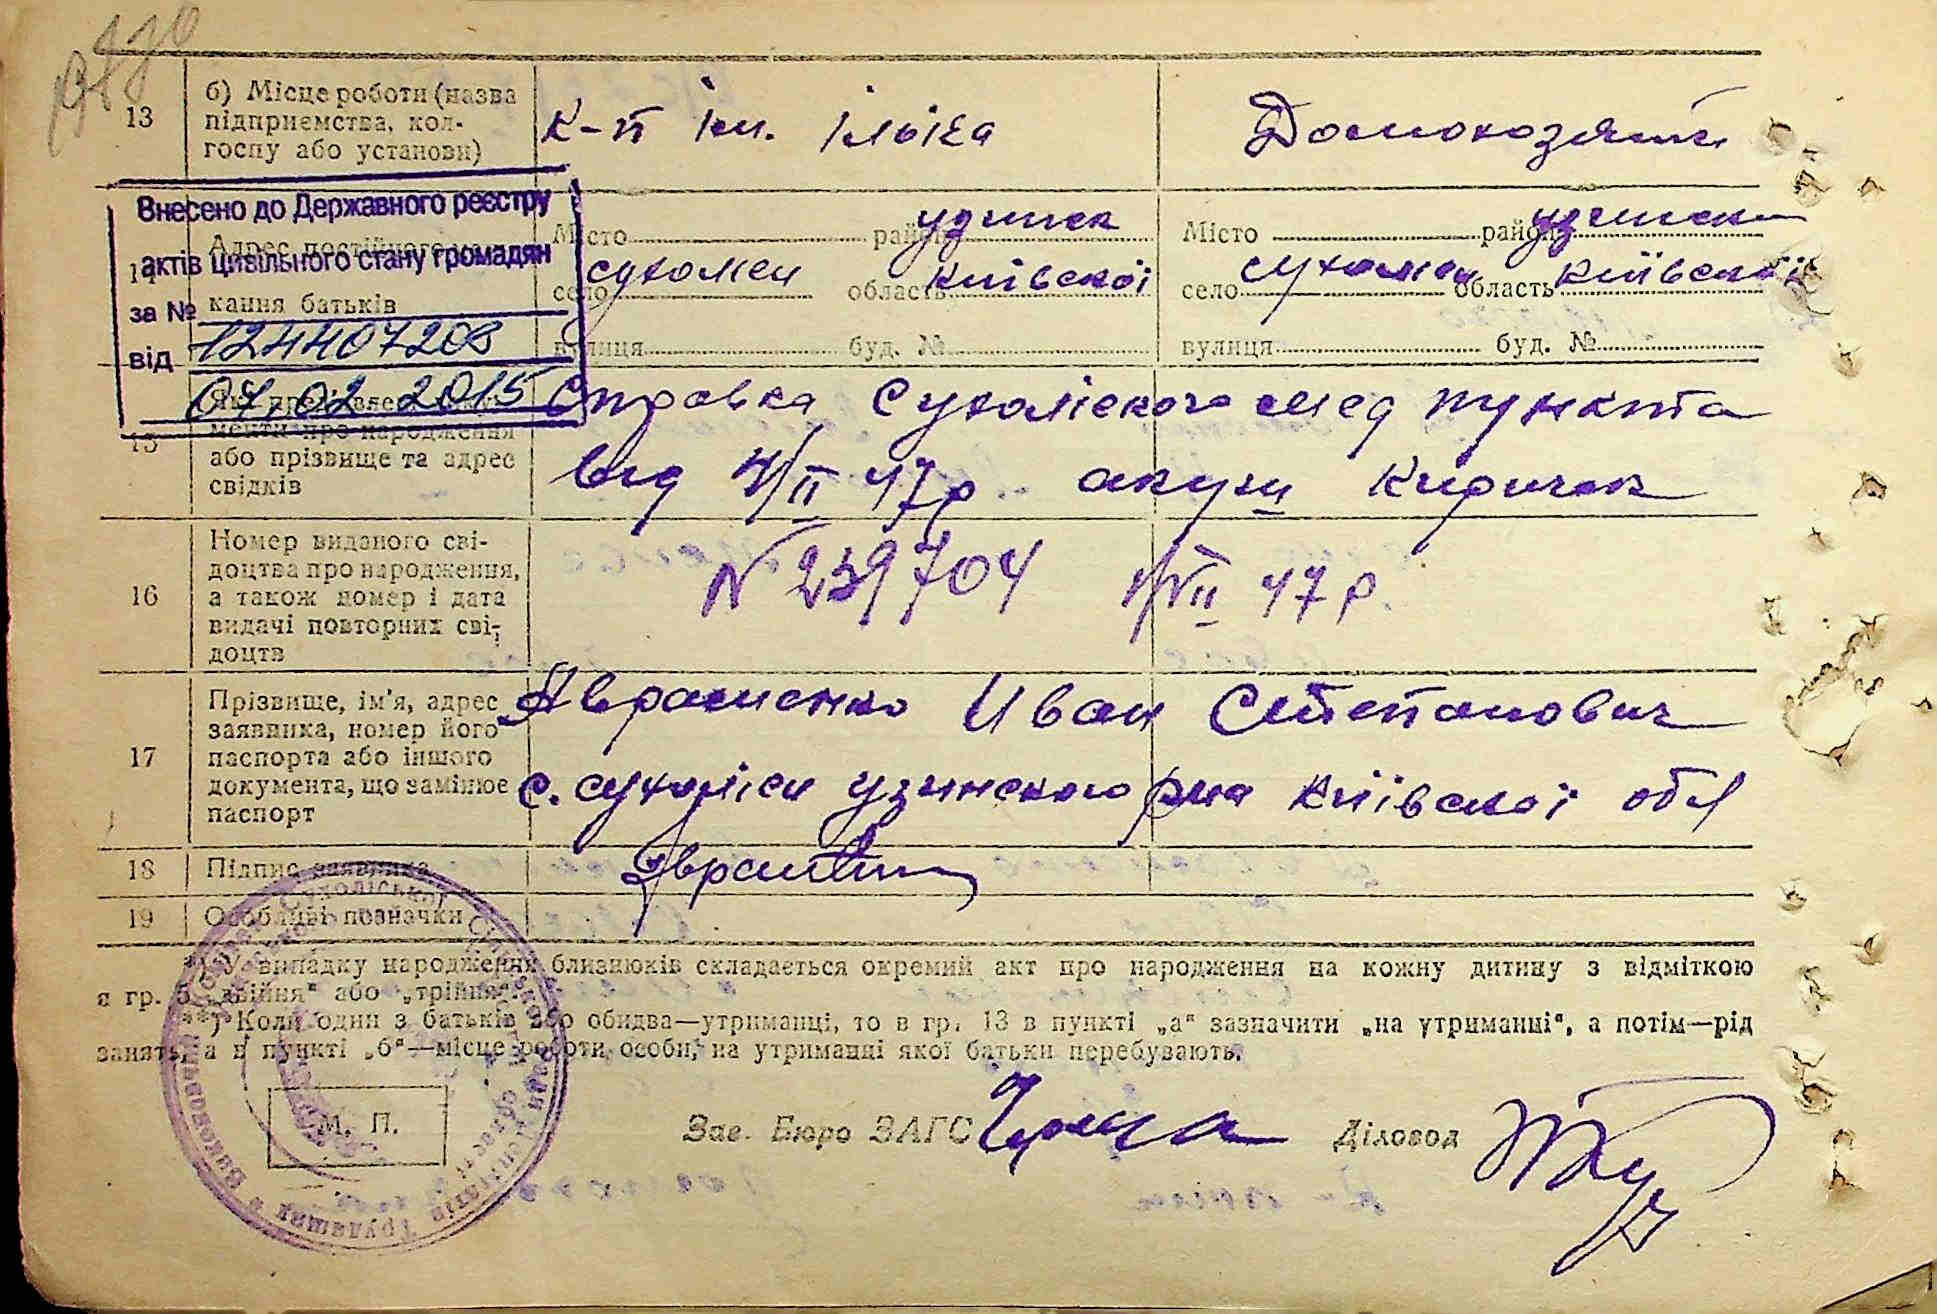 13
б) Місце роботи (назва
підприємства, кол-
госпу або установи)
к-п ім. Ілліча
Домохозяйка
Внесено до Державного реєстру
актів цивільного стану громадян
за № 124407208
від 07.02.2015
Адрес постійного
кання батьків
Місто район узинск
село Сухолеси область Київської
вулиця буд. №
Місто район узинск
село Сухолеси область Київської
вулиця буд. №
15
менти про народження
або прізвище та адрес
свідків
Справка Сухоліского мед пункта
від 4/II 47р акуш Киричек
16
Номер виданого сві-
доцтва про народження,
а також номер і дата
видачі повторних сві-
доцтв
N 239704 47 р.
17
Прізвище, ім'я, адрес
заявника, номер його
паспорта або іншого
документа, що замінює
паспорт
Авраменко Иван Степанович
с. Сухоліси узинского рна Київскої обл
18
Підпис заявника
19
Особливі позначки
*) У випадку народження близнюків складається окремий акт про народження на кожну дитину з відміткою
в гр. 5 „двійня“ або „трійня“.
**) Коли один з батьків або обидва—утриманці, то в гр. 13 в пункті „а“ зазначити „на утриманні“, а потім—рід
занять, а в пункті „б“—місце роботи особи, на утриманні якої батьки перебувають.
М. П.
Зав. Бюро ЗАГС
Діловод